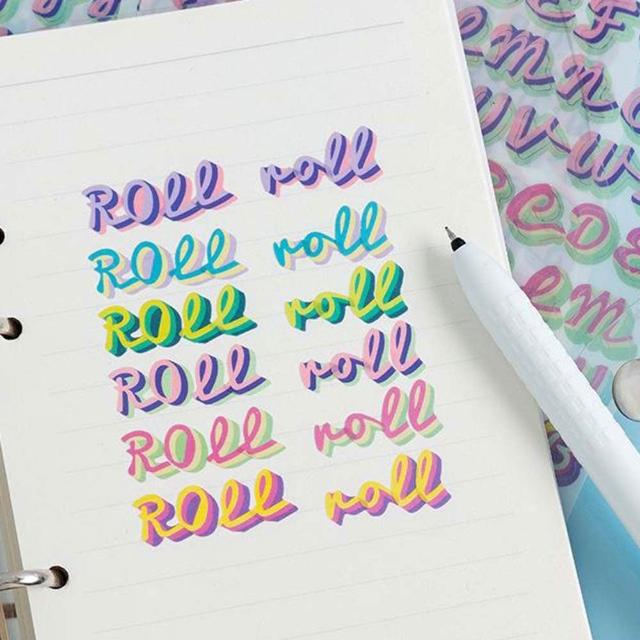 ROll roll
ROll roll
ROll roll
ROll roll
ROll roll
ROll roll